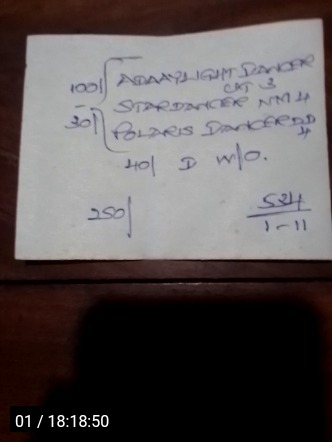 100/ ADAAYLIGHT DANCER
CAT 3
- STARDANCER NM 4
30/ POLARIS DANCER DD 4
40/ D W/O.
250/
534
1-11
01 / 18:18:50